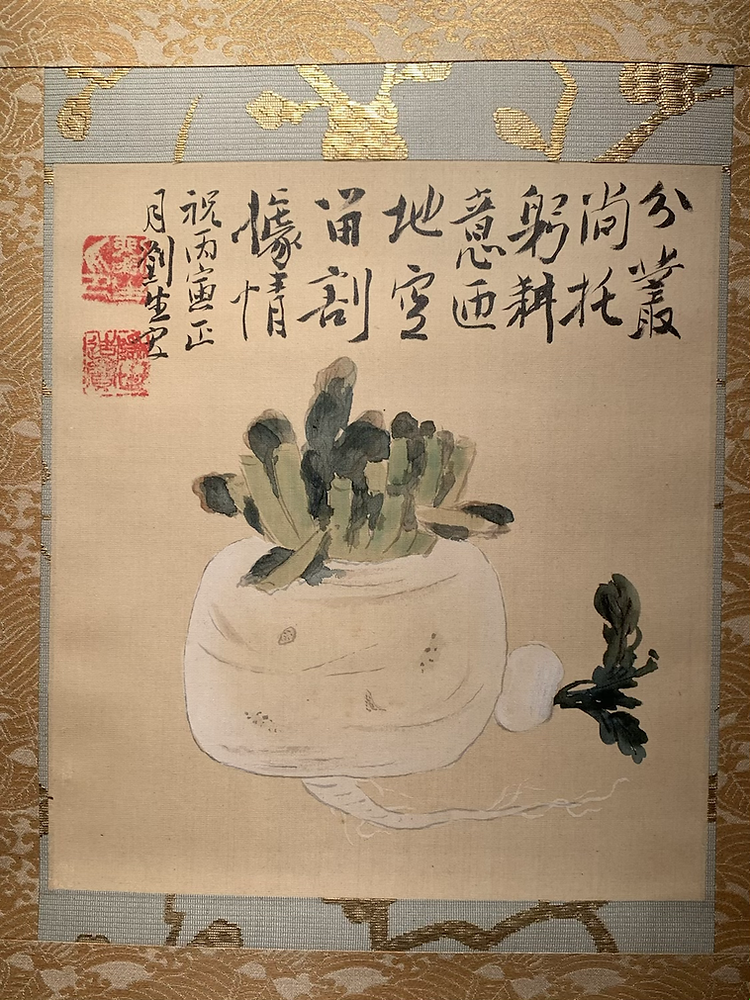 分叢
尚托
躬耕
意迊
地空
留割
據情
祝丙寅正
月劉生寫